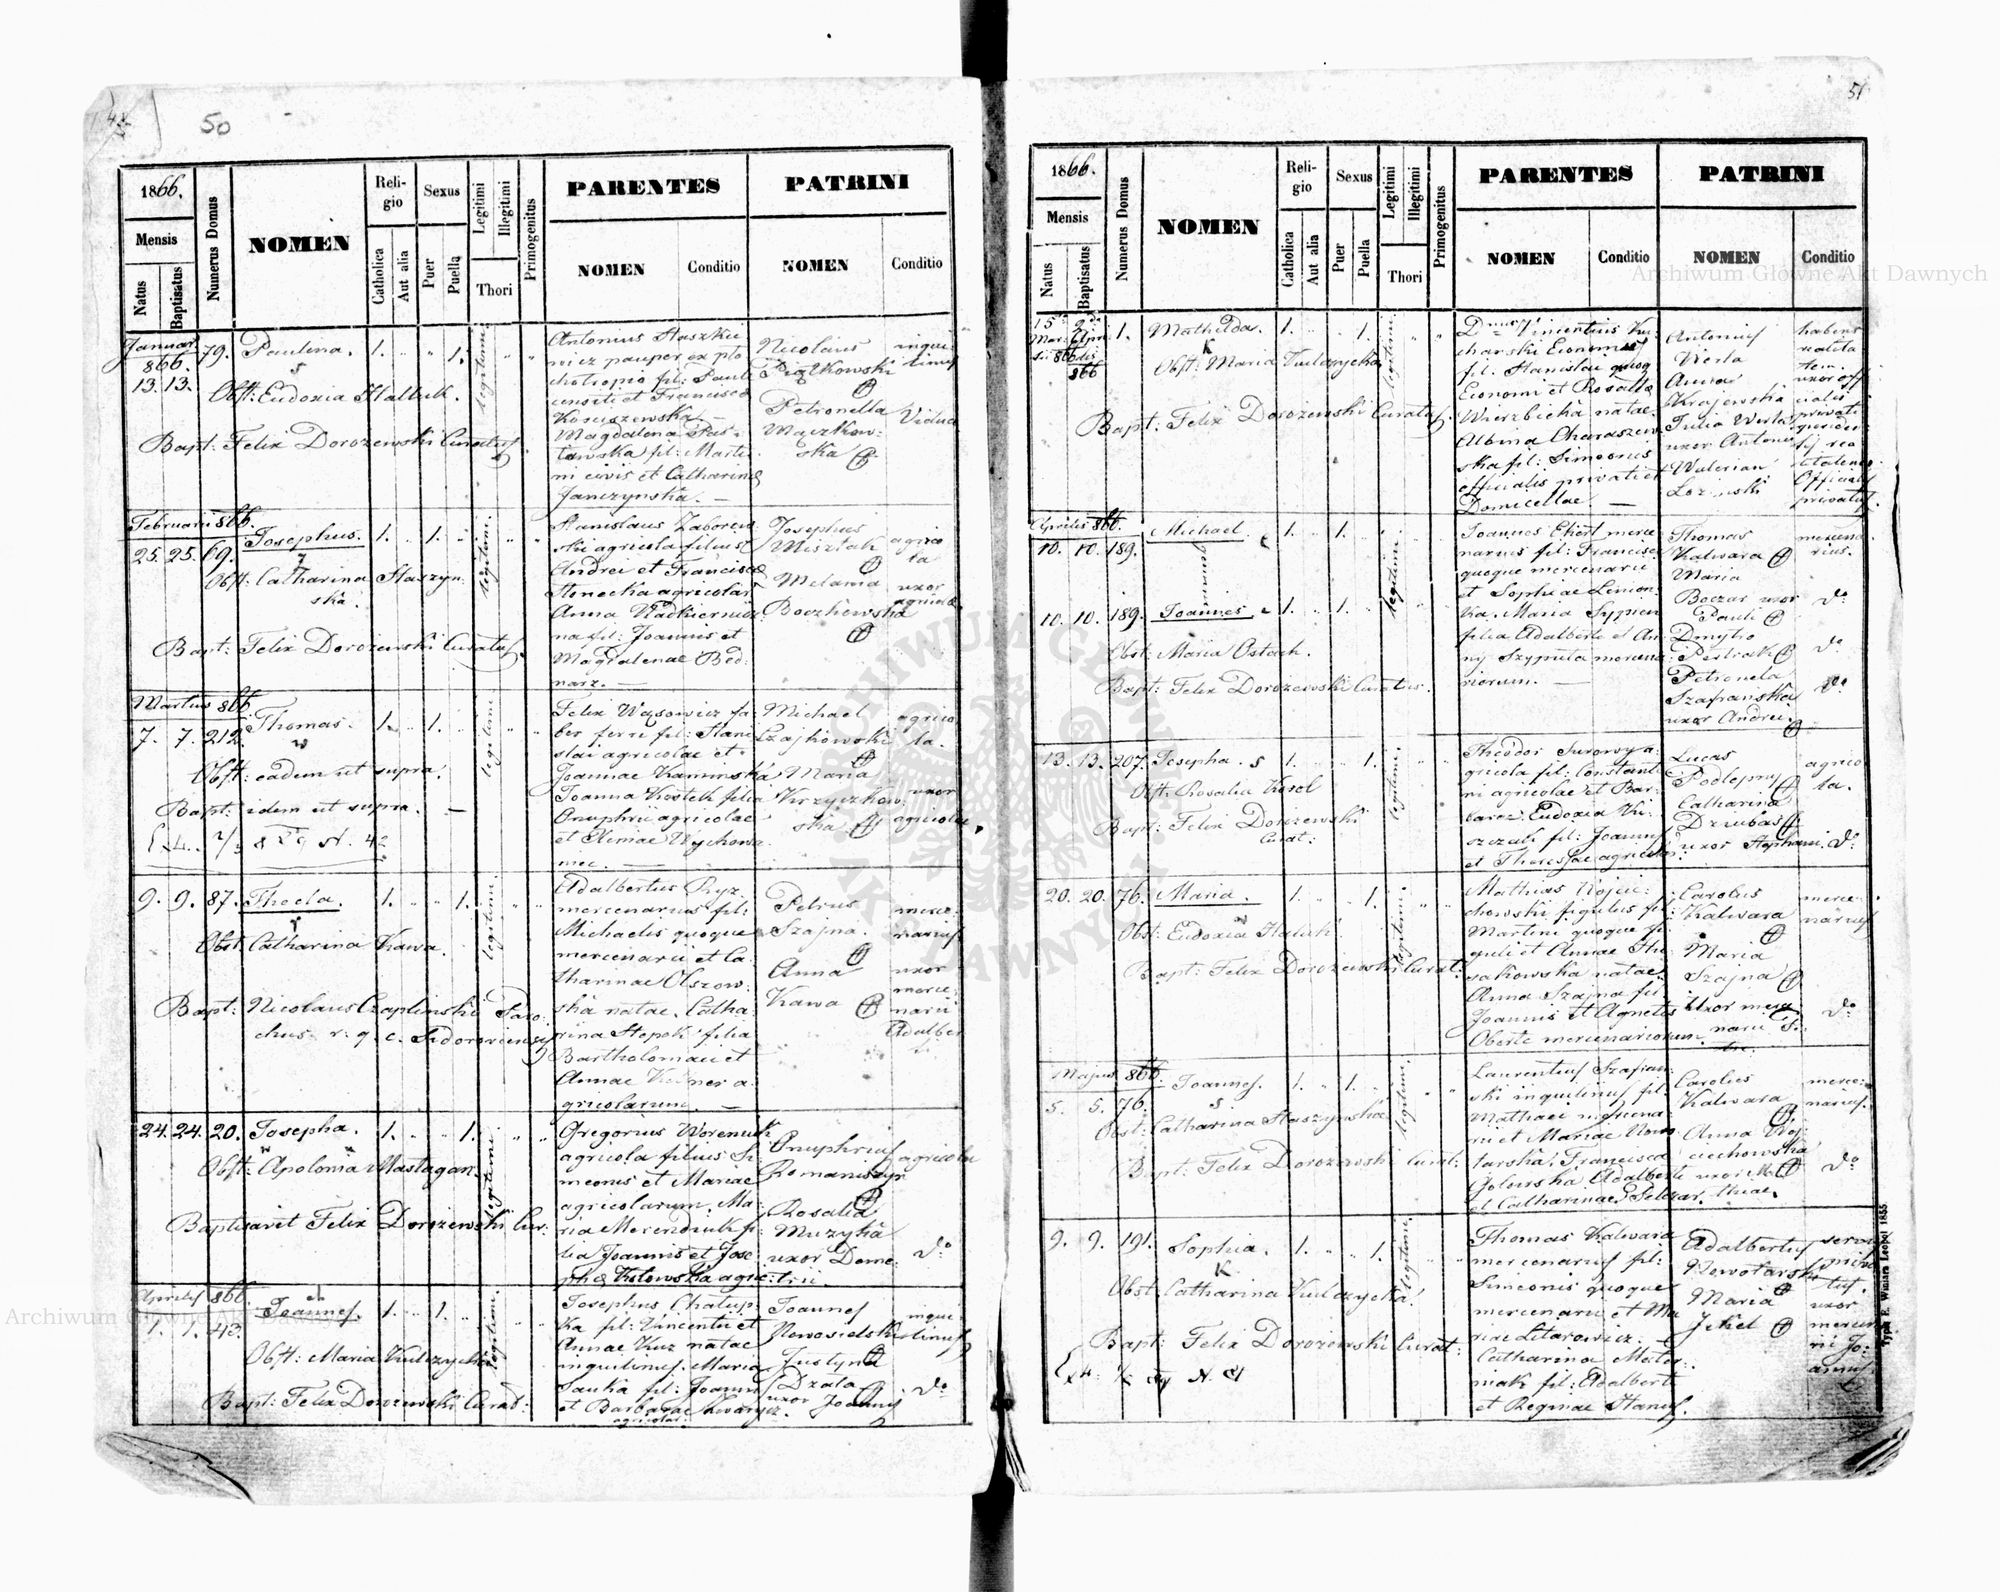 50
1866.
Mensis
Natus
Baptisatus
Numerus Domus
NOMEN
Reli-
gio
Catholica
Aut alia
Sexus
Puer
Puella
Legitimi
Illegitimi
Thori
Primogenitus
PARENTES
NOMEN
Conditio
PATRINI
NOMEN
Conditio
Januar
866.
13. 13. 79. Paulina. 1. 1.
Obst: Eudoxia Halluk.
Bapt: Felix Dorożewski Curatus.
legitimi
Antonius Staszkie
wicz pauper ex pto
chotropio fil: Pauli
censiti et Francisca
Kosciszewska
Magdalena Pas-
tawska fil: Marti-
ni civis et Catharina
Janczynska. —
Nicolaus
Piątkowski
Petronella
Mączkow-
ska
inqui
linus
Vidua
Februarii 866.
25. 25. 69. Josephus. 1. 1.
Obst: Catharina Staszyn
ska.
Bapt: Felix Dorożewski Curatus.
legitimi
Stanislaus Zaborow
ski agricola filius
Andrei et Francisca
Stenecka agricolar
na fil: Joannis et
Magdalenae Bed-
narz. —
Josephus
Misztak
Melania
Boczkowska
agrico
la
uxor
agricola
Martius 866
7. 7. 212. Thomas. 1. 1.
Obst: eadem ut supra.
Bapt: idem ut supra. —
legitimi
Felix Wąsowicz fa-
ber ferri fil: Stani
slai agricolae et
Joannae Kaminska
Joanna Kostek filia
Onuphrii agricolae
Michael
Czajkowski
Maria
Krzyczkow-
ska
agrico
la.
uxor
agricolae
9. 9. 87. Thecla. 1. 1.
Obst: Catharina Kawa.
Bapt: Nicolaus Czaplinski Paro-
chus r. g. c. Sidoroviensis
legitimi
Adalbertus Ryz.
mercenarius fil:
Michaelis quoque
mercenarii et Ca-
tharinae Olszow-
ska natae. Catha-
rina Stepek filia
Bartholomaei et
Annae
gricolarum. —
Petrus
Szajna.
Anna
Kawa
merce-
narius
uxor
merce-
narii
Adalber
ti.
24. 24. 20. Josepha. 1. 1.
Obst: Apolonia Mastagan.
Baptisavit Felix Dorożewski Cur.
legitimi
Gregorius Worenuk
agricola filius Si-
meonis et Mariae
agricolarum. Ma-
ria Merendiuk fi-
lia Joannis et Jose
phae Kotowska agric.
Onuphrius
Romaniszyn
Rosalia
Muzyka
uxor Deme-
trii.
agricola
do
Aprilis 866.
1. 1. 42. Joannes. 1. 1.
Obst: Maria Kulczycka
Bapt: Felix Dorożewski Curat:
legitimi
Josephus Chalup-
ka fil: Vincentii et
Annae Kuz natae
inquilinus. Maria
Sauka fil: Joannis
et Barbarae
agricolar:
Joannes
Nowosielski
Justyna
Dzała
uxor Joannis
inqui
linus
do
51
1866.
Mensis
Natus
Baptisatus
Numerus Domus
NOMEN
Reli-
gio
Catholica
Aut alia
Sexus
Puer
Puella
Legitimi
Illegitimi
Thori
Primogenitus
PARENTES
NOMEN
Conditio
PATRINI
NOMEN
Conditio
1. Mathilda. 1. 1.
Obst: Maria Kulczycka
Bapt: Felix Dorożewski Curatus.
legitimi
Vincentius Ku-
charski Economus
fil. Stanislai quoq
Economi et Rosalia
Wierzbicka natae.
Albina Charaszew
ska fil: Simeonis
officialis privati et
Domicellae —
Antonius
Wierla
Anna
Krajewska
Julia Werla
uxor Antonii
Valerian
Łoziński
habens
realita
tem.
uxor offi
cialis
privati
Officialis
privatus
Aprilis 866.
10. 10. 189. Michael. 1. 1.
10. 10. 189. Joannes. 1. 1.
Obst: Maria Ostach.
Bapt: Felix Dorożewski Curatus.
legitimi
Joannes Ekert merce
narius fil: Francisci
quoque mercenarii
et Sophiae Limon-
ka. Maria Sygnew
filia Adalberti et An
ny Szygnuła mercena
riorum. —
Thomas
Kalwara
Maria
Boczar uxor
Pauli
Dmytro
Pestrak
Petronela
Szafranska
uxor Andrei.
mercena
rius.
do
do
do
13. 13. 207. Josepha. 1. 1.
Obst. Rosalia Korol
Bapt: Felix Dorożewski
Curat:
legitimi
Theodor Surowy a-
gricola fil: Constanti
ni agricolae et Bar-
barae. Eudoxia Ki-
szczak fil: Joannis
et Theressae agricolar:
Lucas
Podlepny
Catharina
Dziubas
uxor Stephani.
agrico
la.
do
20. 20. 76. Maria. 1. 1.
Obst: Eudoxia Haluk.
Bapt: Felix Dorożewski Curat:
legitimi
Mathias Wojcie-
chowski figulus fil.
Martini quoque fi-
guli et Annae
sakowska natae.
Anna Szajna fil.
Joannis et Agnetis
Oberte mercenariorum.
Carolus
Kalwara
Maria
Szajna
Uxor merce
narii
merce-
narius
do
Majus 866.
5. 5. 76. Joannes. 1. 1.
Obst: Catharina Staszynska
Bapt: Felix Dorożewski Curat:
legitimi
Laurentius Szafran-
ski inquilinus fil.
rii et Mariae Nowo
tarska. Francisca
Goturska Adalberti
et Catharinae Selezar.
Carolus
Kalwara
Anna Woj-
ciechowska
uxor Ma
thiae.
merce-
narius.
do
9. 9. 191. Sophia. 1. 1.
Obst: Catharina Kulczycka.
Bapt: Felix Dorożewski Curat:
legitimi
Thomas Kalwara
mercenarius fil:
Simeonis quoque
mercenarii et Ma
riae Litarowicz. —
Catharina Mater-
niak fil: Adalberti
et Reginae Hanus.
Adalbertus
Nowotarski
Maria
Jekel
servus
priva
tus.
uxor
mercena
rii Jo-
annis
Typis E. Winiarz Leopol 1855
Archiwum Główne Akt Dawnych
Archiwum Główne Akt Dawnych
ARCHIWUM GŁÓWNE AKT DAWNYCH